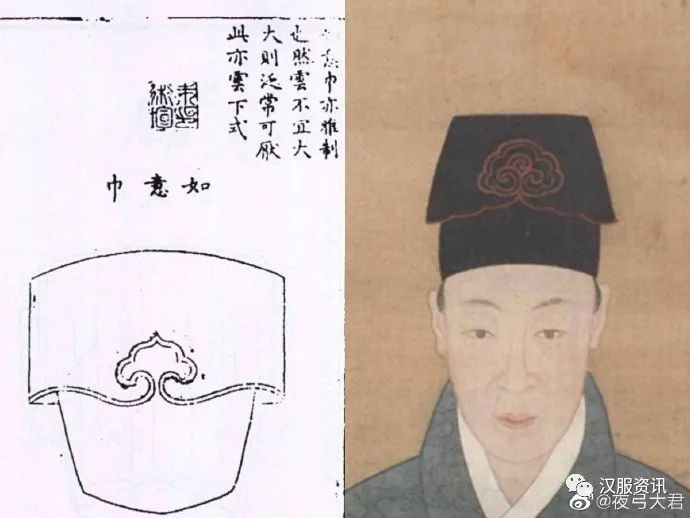 意巾亦雅制
也然雲不宜大
大則泛常可厭
此亦雲下式
如意巾
汉服资讯
@夜弓大君